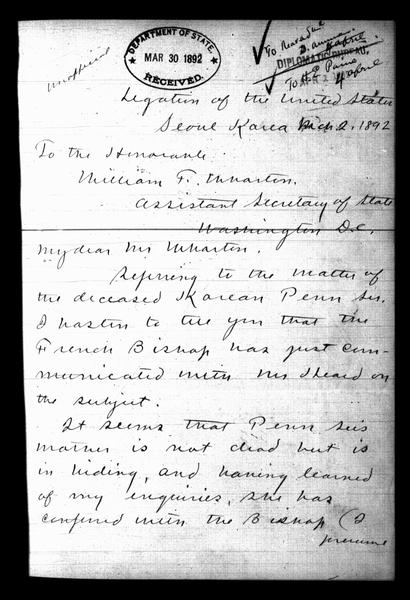 unofficial
DEPARTMENT OF STATE,
MAR 30 1892
RECEIVED.
DIPLOMATIC BUREAU,
4 April
Legation of the United States
Seoul Korea Mch 2, 1892
To the Honorable
William F. Wharton.
Assistant Secretary of State
Washington D.C.
My dear Mr Wharton.
Referring to the matter of
the deceased Korean Penn Su.
I hasten to tell you that the
French Bishop has just com-
municated with me on
the subject.
It seems that Penn Su's
mother is not dead but is
in hiding, and having learned
of my enquiries, she has
conferred with the Bishop (I
presume